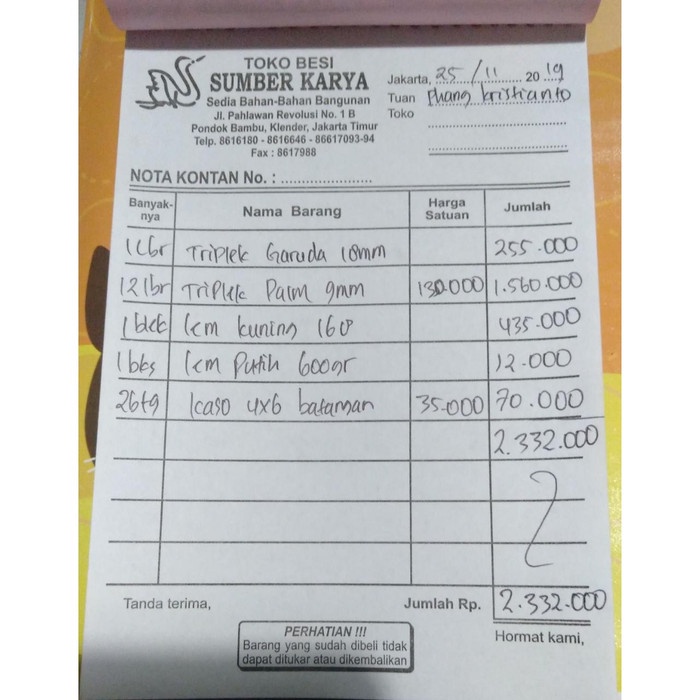 TOKO BESI
SUMBER KARYA
Sedia Bahan-Bahan Bangunan
Jl. Pahlawan Revolusi No. 1 B
Pondok Bambu, Klender, Jakarta Timur
Telp. 8616180 - 8616646 - 86617093-94
Fax : 8617988
Jakarta, 25 / 11 2019
Tuan Phang kristianto
Toko
NOTA KONTAN No. :
Banyak-nya Nama Barang Harga Satuan Jumlah
1 Lbr Triplek Garuda 18mm 255.000
12 lbr Triplek Palm 9mm 130.000 1.560.000
1 blek lem kuning 435.000
1 bks lem Putih 600gr 12.000
2btg kaso 4x6 35.000 70.000
2.332.000
Tanda terima, Jumlah Rp. 2.332.000
PERHATIAN !!!
Barang yang sudah dibeli tidak
dapat ditukar atau dikembalikan
Hormat kami,